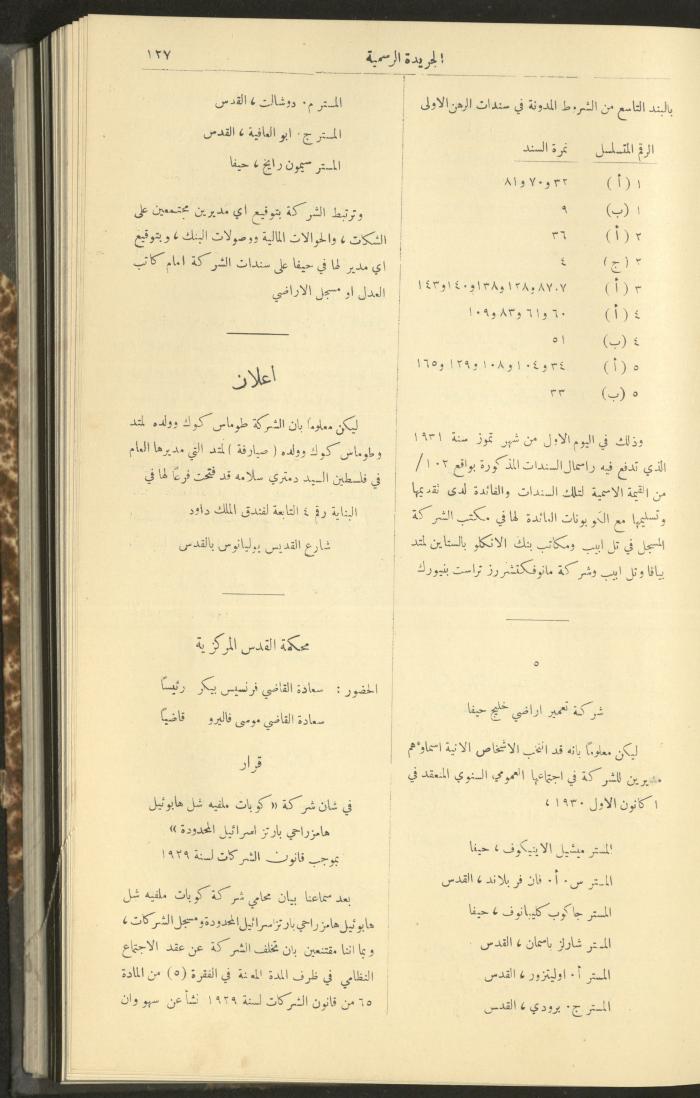 الجريدة الرسمية
١٢٧
بالبند التاسع من الشروط المدونة في سندات الرهن الاولى
الرقم المتسلسل نمرة السند
١ ( أ ) ٣٢ و ٧٠ و ٨١
١ (ب) ٩
٢ ( أ ) ٣٦
٢ (ج) ٤
٣ ( أ ) ٧،٨٧ و ١٢٨ و ١٣٨ و ١٤٠ و ١٤٣
٤ ( أ ) ٦٠ و ٦١ و ٨٣ و ١٠٩
٤ (ب) ٥١
٥ ( أ ) ٣٤ و ١٠٤ و ١٠٨ و ١٢٩ و ١٦٥
٥ (ب) ٣٣
وذلك في اليوم الاول من شهر تموز سنة ١٩٣١
الذي تدفع فيه راسمال السندات المذكورة بواقع ١٠٢/
من القيمة الاسمية لتلك السندات والفائدة لدى تقديمها
وتسليمها مع الكوبونات العائدة لها في مكتب الشركة
المسجل في تل ابيب ومكاتب بنك الانكلو بالستاين لمتد
بيافا وتل ابيب وشركة مانوفكتشررز تراست بنيورك
٥
شركة تعمير اراضي خليج حيفا
ليكن معلوماً بانه قد انتخب الاشخاص الاتية اسماؤهم
مديرين للشركة في اجتماعها العمومي السنوي المنعقد في
١ كانون الاول ١٩٣٠ ،
المستر ميشيل الاينيكوف ، حيفا
المستر س . أ . فان فريلاند ، القدس
المستر جاكوب كليبانوف ، حيفا
المستر شارلز باسمان ، القدس
المستر أ . اوليتزور ، القدس
المستر ج . برودي ، القدس
المستر م . دوشالت ، القدس
المستر ج . ابو العافية ، القدس
المستر سيمون رايخ ، حيفا
وترتبط الشركة بتوقيع اي مديرين مجتمعين على
الشكات ، والحوالات المالية ووصولات البنك ، وبتوقيع
اي مدير لها في حيفا على سندات الشركة امام كاتب
العدل او مسجل الاراضي
اعلان
ليكن معلوماً بان الشركة طوماس كوك وولده لمتد
وطوماس كوك وولده ( صيارفة ) لمتد التي مديرها العام
في فلسطين السيد دمتري سلامه قد فتحت فرعاً لها في
البناية رقم ٤ التابعة لفندق الملك داود
شارع القديس يوليانوس بالقدس
محكمة القدس المركزية
الحضور : سعادة القاضي فرنسيس بيكر رئيساً
سعادة القاضي موسى فاليرو قاضياً
قرار
في شان شركة « كوبات ملفيه شل هابوئيل
هامزراحي بارتز اسرائيل المحدودة »
بموجب قانون الشركات لسنة ١٩٢٩
بعد سماعنا بيان محامي شركة كوبات ملفيه شل
هابوئيل هامزراحي بارتز اسرائيل المحدودة ومسجل الشركات ،
وبما اننا مقتنعين بان تخلف الشركة عن عقد الاجتماع
النظامي في ظرف المدة المعينة في الفقرة (٥) من المادة
٦٥ من قانون الشركات لسنة ١٩٢٩ نشأ عن سهو وان